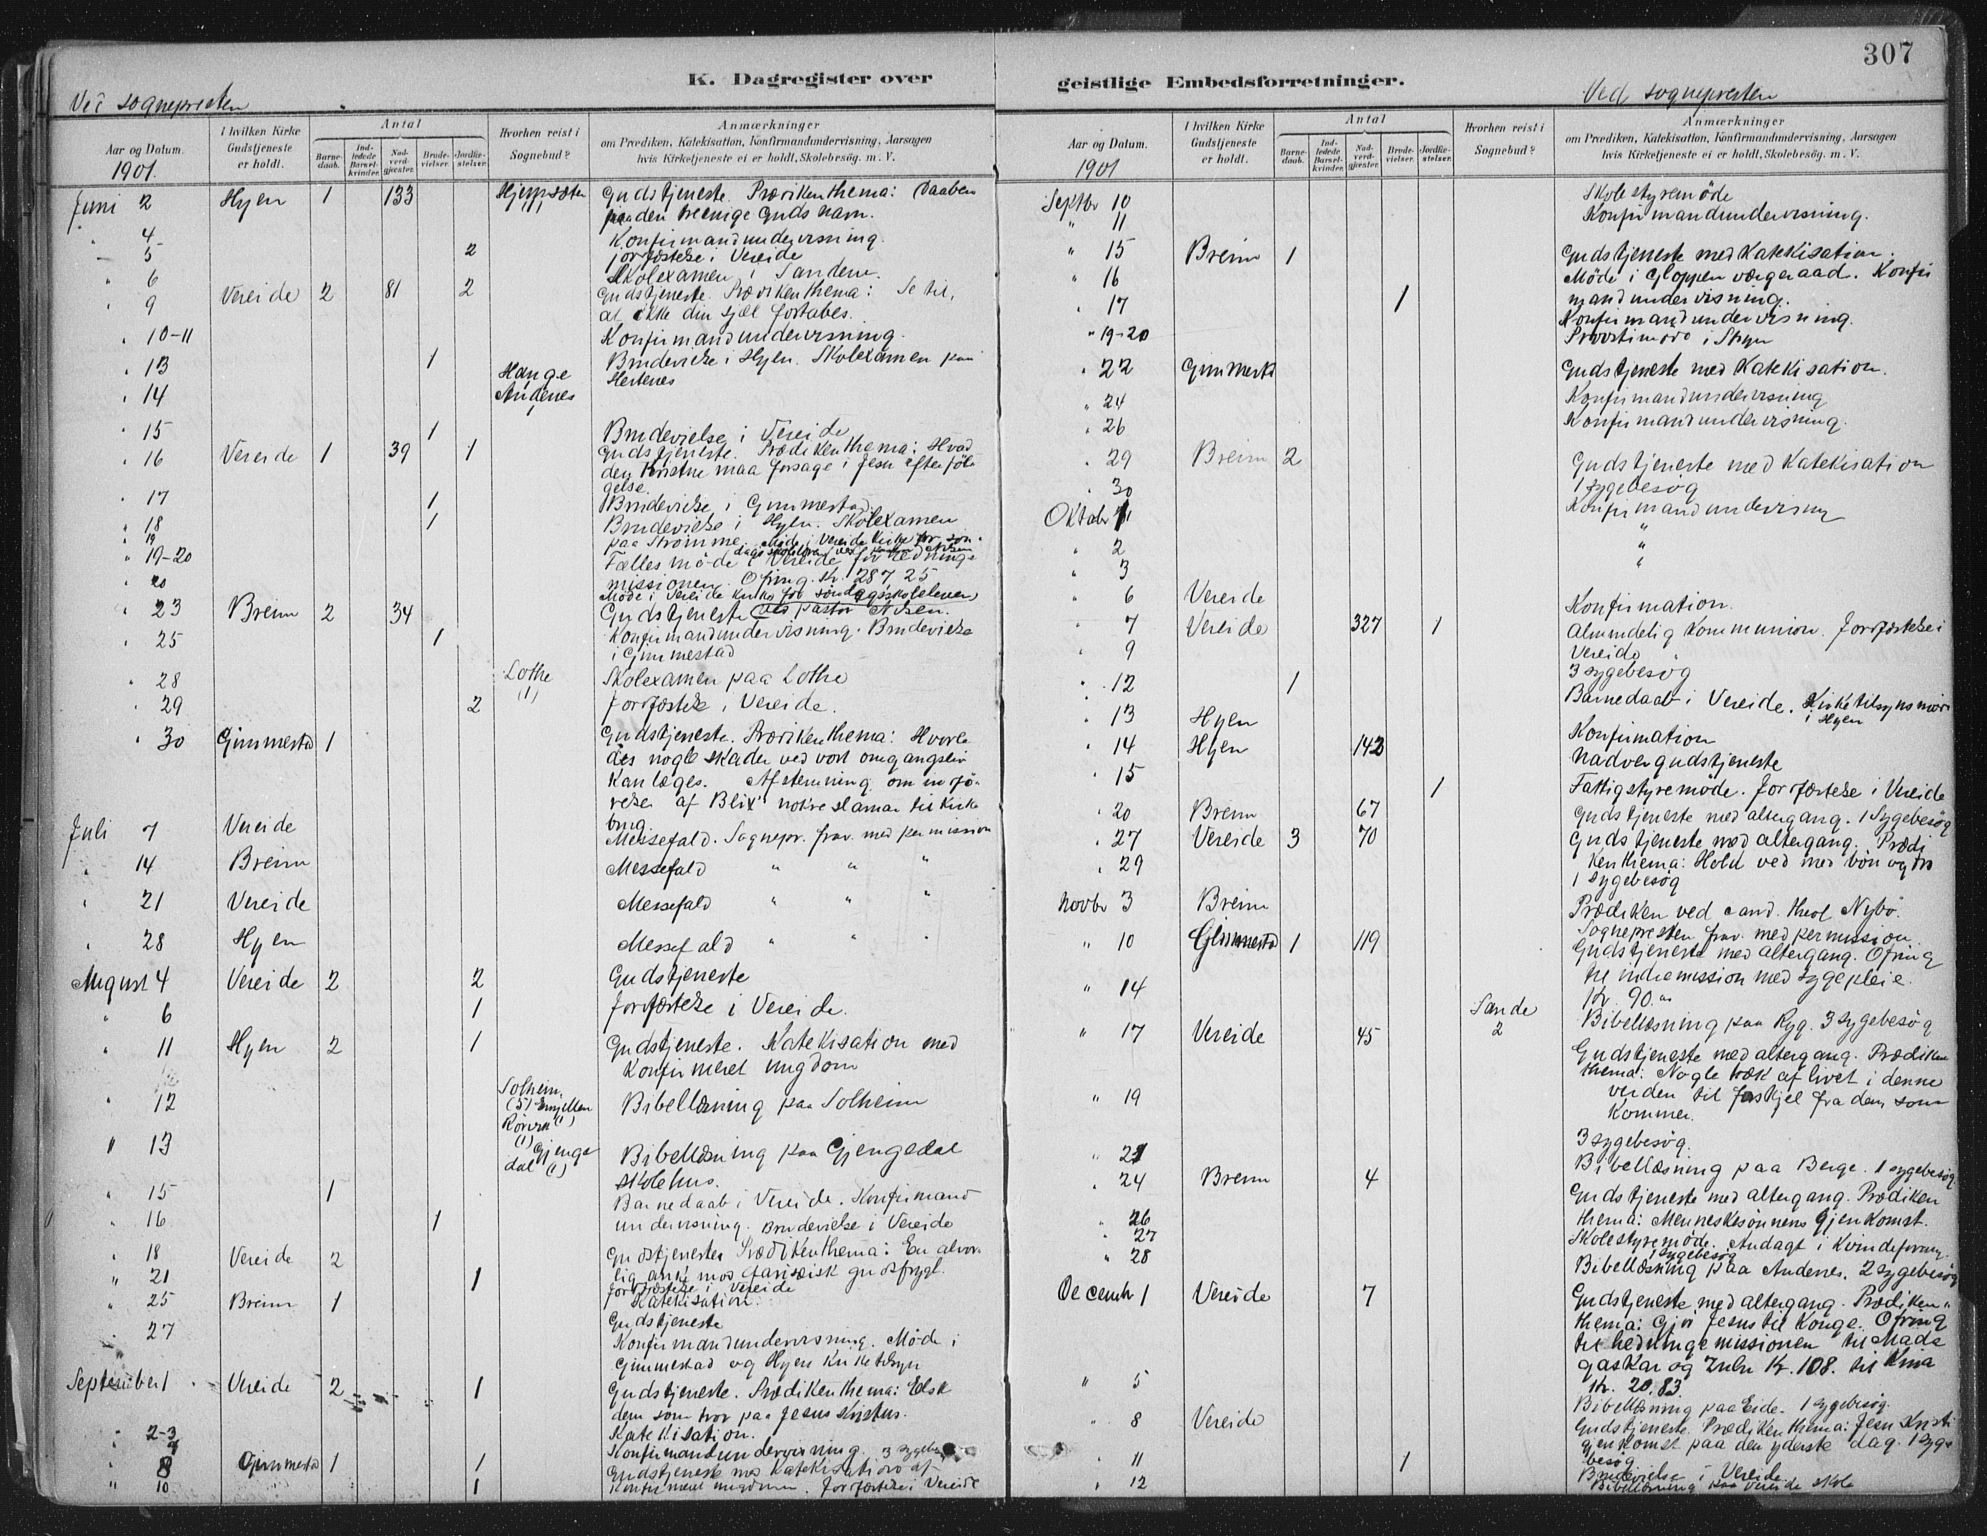 307
K. Dagregister over
geistlige Embedsforretninger.
Ved sognepresten
Aar og Datum.
1901.
I hvilken Kirke Gudstjeneste er holdt.
Antal
Barne-daab.
Ind-ledede Barsel-kvinder.
Nad-verd-gjester.
Brude-vielser.
Jordfæ-stelser.
Hvorhen reist i Sognebud?
Anmærkninger
om Prædiken, Katekisation, Konfirmandundervisning, Aarsagen
hvis Kirketjeneste ei er holdt, Skolebesøg m. V.
Juni 2 Hyen 1 133 Gudstjeneste. Prædikenthema: Daaben
paa den treenige Guds navn.
" 4 Konfirmandundervisning.
" 5 2 Jordfæstelse i Vereide
" 6 Skolexamen i Sandene.
" 9 Vereide 2 81 2 Gudstjeneste. Prædikenthema: Se til,
at ikke din sjæl fortabes.
" 10-11 Konfirmandundervisning.
" 13 1 Brudevielse i Hyen. Skolexamen paa
Hestenes
" 14 Hauge
Andenes
" 15 1 Brudevielse i Vereide
" 16 Vereide 1 39 1 Gudstjeneste. Prædikenthema: Hvad
den kristne maa forsage i Jesu efterföl-
gelse.
" 17 1 Brudevielse i Gimmestad
" 18 1 Brudevielse i Hyen. Skolexamen
paa Strömme. Möde i Vereide kirke for søn-
" 19
" 19-20 Fælles möde i Vereide for hednings
missionen. Ofring. Kr. 287 25
" 20 Möde i Vereide kirke for söndagsskolelever
" 23 Breim 2 34 Gudstjeneste ved pastor Nilsen.
" 25 1 Konfirmandundervisning. Brudevielse
i Gimmestad
" 28 Lothe
(1) Skolexamen paa Lothe
" 29 2 Jordfæstelse i Vereide.
" 30 Gimmestad 1 Gudstjeneste. Prædikenthema: Hvorle
des nogle skader ved vort omgangsliv
kan læges. Afstemning om indfö-
relse af Blix' norske salmar til kirke
brug.
Juli 7 Vereide Messefald. Sognepr. frav. med permission
" 14 Breim Messefald " " "
" 21 Vereide Messefald " " "
" 28 Hyen Messefald " " "
August 4 Vereide 2 2 Gudstjeneste
" 6 1 Jordfæstelse i Vereide.
" 11 Hyen 2 1 Gudstjeneste. Katekisation med
Konfirmeret ungdom
" 12 Solheim,
(5) Bibellæsning paa Solheim
" 13 Gjenge
dal (1) Bibellæsning paa Gjengedal
skolehus.
" 15 1 Barnedaab i Vereide. Konfirmand
" 16 1 undervisning. Brudevielse i Vereide
" 18 Vereide 2 Gudstjeneste. Prædikenthema: En alvor-
lig anke mod farisæisk gudsfrygt.
" 21 1 Jordfæstelse i Vereide
Katekisation.
" 25 Breim 1 Gudstjeneste
" 27 Konfirmandundervisning. Möde i
Gimmestad og Hyen kirketilsyn
September 1 Vereide 2 1 Gudstjeneste. Prædikenthema: Elsk
dem som tror paa Jesus Kristus.
Katekisation.
" 2-3 Konfirmandundervisning. 3 sygebes
" 8 Gimmestad 1 1 Gudstjeneste med Katekisation af
" 10 1 Konfirmeret ungdom. Jordfæstelse i Vereide
Ved sognepresten
Aar og Datum.
1901
I hvilken Kirke Gudstjeneste er holdt.
Antal
Barne-daab.
Ind-ledede Barsel-kvinder.
Nad-verd-gjester.
Brude-vielser.
Jordfæ-stelser.
Hvorhen reist i Sognebud?
Anmærkninger
om Prædiken, Katekisation, Konfirmandundervisning, Aarsagen
hvis Kirketjeneste ei er holdt, Skolebesøg m. V.
Septbr 10 Skolestyremöde
" 11 Konfirmandundervisning.
" 15 Breim 1 Gudstjeneste med Katekisation.
" 16 Möde i Gloppen værgeraad. Konfir
mandundervisning.
" 17 1 Konfirmandundervisning.
" 19-20 Provstimöde i Stryn
" 22 Gimmestd Gudstjeneste med Katekisation.
" 24 Konfirmandundervisning
" 26 Konfirmandundervisning.
" 29 Breim 2 Gudstjeneste med Katekisation
" 30 1 sygebesög
Oktobr 1 Konfirmandundervisning
" 2 "
" 3 "
" 6 Vereide Konfirmation.
" 7 Vereide 327 1 Almindelig Kommunion. Jordfæstelse i
Vereide
" 9 3 sygebesög
" 12 1 Barnedaab i Vereide. Kirketilsynsmöde
i Hyen
" 13 Hyen Konfirmation
" 14 Hyen 142 Nadvergudstjeneste
" 15 1 Fattigstyremöde. Jordfæstelse i Vereide
" 20 Breim 67 Gudstjeneste med altergang. 1 Sygebesög
" 27 Vereide 3 70 Gudstjeneste med altergang. Prædi
kenthema: Hold ved med bön og tro
" 29 1 sygebesög
Novbr 3 Breim Prædiken ved cand. theol Nybö.
Sognepresten frav. med permission.
" 10 Gimmestd 1 119 Gudstjeneste med altergang. Ofring
til indremission med sygepleie.
Kr. 90.
" 14 Sande
2 Bibellæsning paa Ryg. 3 sygebesög
" 17 Vereide 45 Gudstjeneste med altergang. Prædiken
thema: Nogle træk af livet i denne
verden til forskjel fra den, som
kommer.
" 19 3 sygebesög.
" 21 Bibellæsning paa Berge. 1 sygebesög
" 24 Breim 4 Gudstjeneste med altergang. Prædiken
thema: Menneskesönnens gjenkomst.
" 26 Skolestyremöde. Andagt i Kvindeforeng.
" 27 1 sygebesög
" 28 Bibellæsning paa Andenes. 2 sygebesög
Decembr 1 Vereide 7 Gudstjeneste med altergang. Prædiken-
thema: Gjör Jesus til Konge. Ofring
til hedningemissionen til Mada
gaskar og Zulu Kr. 108. til Kina
Kr. 20,83.
" 5 Bibellæsning paa Eide. 1 sygebesög.
" 8 Vereide Gudstjeneste. Prædikenthema: Jesu Kristi
gjenkomst paa den yderste dag. 1 syge
besög
" 11 1 Brudevielse i Vereide
" 12 Bibellæsning paa Vereide skole